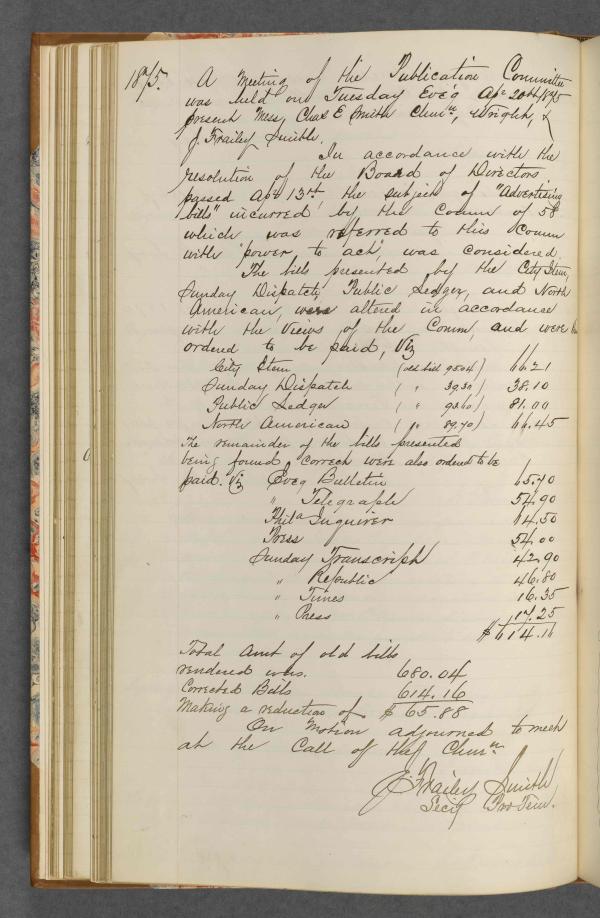 1875. A Meeting of the Publication Committee
was held on Tuesday Eve'g Apl 20th 1875
present Mess. Chas E Smith Chmn, Wright, &
J. Frailey Smith.
In accordance with the
resolution of the Board of Directors
passed Apl 13th the subject of "Advertising
bills" incurred by the Comm of 58
which was referred to this Comm
with "power to act" was considered.
The bills presented by the City Item,
Sunday Dispatch, Public Ledger, and North
American, were altered in accordance
with the views of the Comm, and were
ordered to be paid, Viz
City Item (old bill 95.04) 66.21
Sunday Dispatch ( " 39.30 ) 38.10
Public Ledger ( " 92.60 ) 81.00
North American ( " 89.70 ) 66.45
The remainder of the bills presented
being found correct were also ordered to be
paid. Viz Eveg Bulletin 65.70
" Telegraph 54.90
Phila Inquirer 64.50
Press 54.00
Sunday Transcript 42.90
" Republic 46.80
" Times 16.35
" Press 17.25
$614.16
Total Amt of old bills
rendered was. 680.04
Corrected Bills 614.16
Making a reduction of $65.88
On Motion adjourned to meet
at the Call of the Chmn
J. Frailey Smith
Secy Pro Tem.